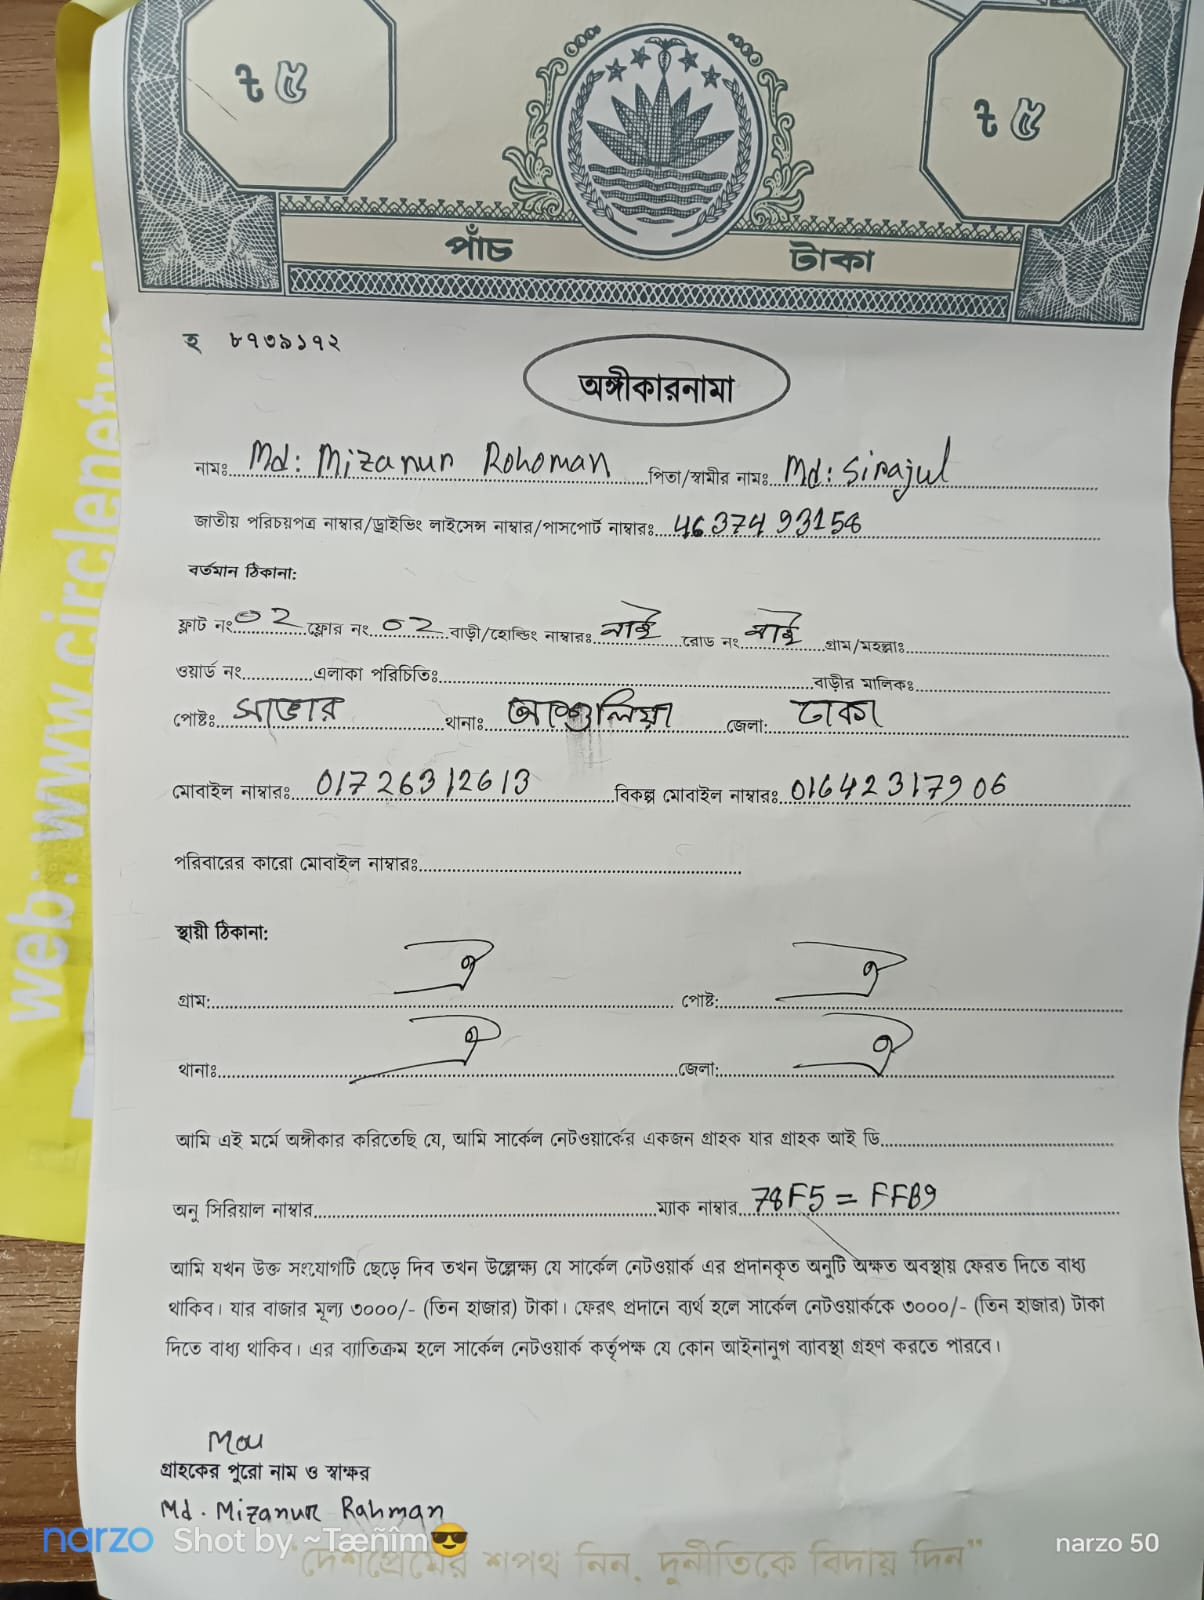 ৳ ৫ ৳ ৫
পাঁচ টাকা
হ ৮৭৩৯১৭২
অঙ্গীকারনামা
নামঃ Md: Mizanur Rohoman পিতা/স্বামীর নামঃ Md: Sirajul
জাতীয় পরিচয়পত্র নাম্বার/ড্রাইভিং লাইসেন্স নাম্বার/পাসপোর্ট নাম্বারঃ 4637493158
বর্তমান ঠিকানা:
ফ্লাট নং 02 ফ্লোর নং 02 বাড়ী/হোল্ডিং নাম্বারঃ নাই রোড নং নাই গ্রাম/মহল্লাঃ
ওয়ার্ড নং এলাকা পরিচিতিঃ বাড়ীর মালিকঃ
পোষ্টঃ সাভার থানাঃ আশুলিয়া জেলা: ঢাকা
মোবাইল নাম্বারঃ 01726312613 বিকল্প মোবাইল নাম্বারঃ 01642317906
পরিবারের কারো মোবাইল নাম্বারঃ
স্থায়ী ঠিকানা:
গ্রাম: ঐ পোষ্ট: ঐ
থানাঃ ঐ জেলা: ঐ
আমি এই মর্মে অঙ্গীকার করিতেছি যে, আমি সার্কেল নেটওয়ার্কের একজন গ্রাহক যার গ্রাহক আই ডি
অনু সিরিয়াল নাম্বার ম্যাক নাম্বার 78F5 = FFB9
আমি যখন উক্ত সংযোগটি ছেড়ে দিব তখন উল্লেক্ষ্য যে সার্কেল নেটওয়ার্ক এর প্রদানকৃত অনুটি অক্ষত অবস্থায় ফেরত দিতে বাধ্য
থাকিব। যার বাজার মূল্য ৩০০০/- (তিন হাজার) টাকা। ফেরৎ প্রদানে ব্যর্থ হলে সার্কেল নেটওয়ার্ককে ৩০০০/- (তিন হাজার) টাকা
দিতে বাধ্য থাকিব। এর ব্যাতিক্রম হলে সার্কেল নেটওয়ার্ক কর্তৃপক্ষ যে কোন আইনানুগ ব্যাবস্থা গ্রহণ করতে পারবে।
Mou
গ্রাহকের পুরো নাম ও স্বাক্ষর
Md. Mizanur Rahman
narzo Shot by ~Tæñîm😎 narzo 50
"দেশপ্রেমের শপথ নিন, দুর্নীতিকে বিদায় দিন"
web: www.circlenetw